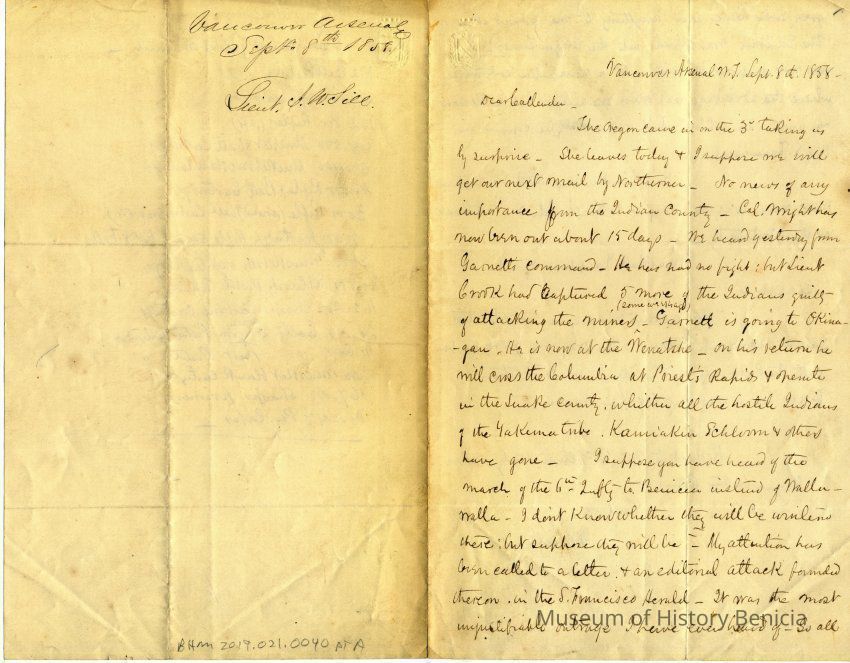 Vancouver Arsenal
Sept. 8th 1858
Lieut. J. W. Sill.
BHM 2019.021.0040 PT A
Vancouver Arsenal W.T. Sept. 8th. 1858 -
Dear Callender -
The Oregon came in on the 3d taking us
by surprise - She leaves today & I suppose we will
get our next mail by Northerner - No news of any
importance from the Indian County - Col. Wright has
now been out about 15 days - We heard yesterday from
Garnetts command - He has had no fight: but Lieut
Crook had captured 5 more of the Indians guilty
(some wks ago)
of attacking the miners - Garnett is going to Okina-
-gan. He is now at the Wenatshe - on his return he
will cross the Columbia at Priests Rapids & operate
in the Snake County, whither all the hostile Indians
of the Yakima tribe. Kamiakin & others
have gone - I suppose you have heard of the
march of the 6th Infty to Benicia instead of Walla-
walla - I dont know whether they will be
there: but suppose they will be - My attention has
been called to a letter, & an editorial attack founded
thereon, in the S. Francisco Herald - It was the most
unjustifiable outrage I have ever heard of - So all
Museum of History Benicia